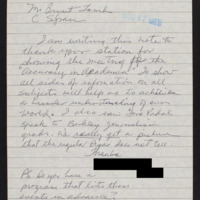 Mr. Bryant Lamb
C Span
I am writing this note to
thank your station for
showing the meeting of the
"Accuracy in Academia". To show
all sides of information on all
subjects will help us to achieve
a broader understanding of our
world. I also saw
speak to Berkeley journalism
grads. We really get a picture
that the regular
does not tell
Thanks
Ps Do you have a
program that lists these
events in advance?